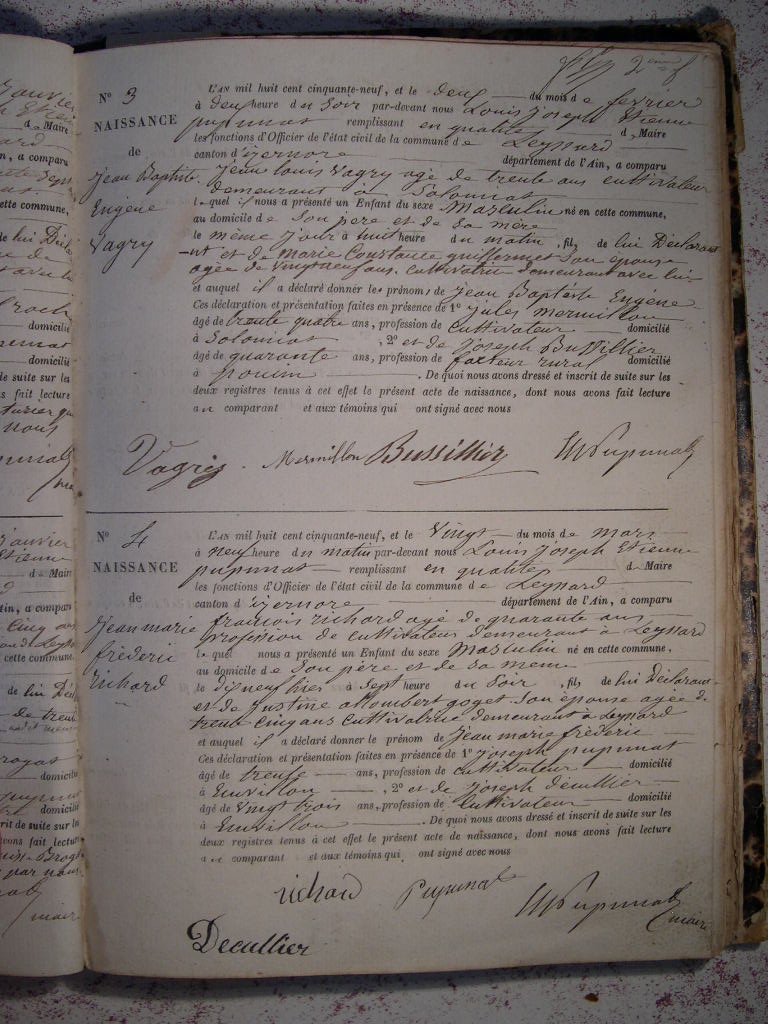 2eme f
N° 3
NAISSANCE
de
Jean Baptiste
Eugène
Vagry
L'AN mil huit cent cinquante-neuf, et le deux du mois de fevrier
à deux heure du soir par-devant nous Louis Joseph Etienne
pupunat remplissant en qualité d Maire
les fonctions d'Officier de l'état civil de la commune de Leyssard
canton d'izernore département de l'Ain, a comparu
Jean louis Vagry agé de trente ans cultivateur
demeurant à Solomiat
lequel il nous a présenté un Enfant du sexe Masculin né en cette commune,
au domicile de son père et de sa mère
le même jour à huit heure du matin, fils de lui Déclarant
et de Marie Constance guillermet son épouse
agée de vingt neuf ans, cultivatrice demeurant avec lui
et auquel il a déclaré donner les prénoms de Jean Baptiste Eugène
Ces déclaration et présentation faites en présence de 1° jules mermillon
âgé de trente quatre ans, profession de Cultivateur domicilié
à Solomiat, 2° et de Joseph Bussillier
âgé de quarante ans, profession de facteur rural domicilié
à. De quoi nous avons dressé et inscrit de suite sur les
deux registres tenus à cet effet le présent acte de naissance, dont nous avons fait lecture
au comparant et aux témoins qui ont signé avec nous
Vagry Mermillon Bussillier Pupunat
N° 4
NAISSANCE
de
Jean marie
fréderic
richard
L'AN mil huit cent cinquante-neuf, et le Vingt du mois de mars
à neuf heure du matin par-devant nous Louis Joseph Etienne
pupunat remplissant en qualité d Maire
les fonctions d'Officier de l'état civil de la commune de Leyssard
canton d'izernore département de l'Ain, a comparu
francois richard agé de quarante ans
profession de cultivateur demeurant à Leyssard
lequel nous a présenté un Enfant du sexe Masculin né en cette commune,
au domicile de son père et de sa mere
le dix neuf hier à sept heure du Soir, fils de lui Déclarant
et de Justine allombert goget son épouse agée de
trente cinq ans Cultivatrice demeurant à Leyssard
et auquel il a déclaré donner le prénom de Jean marie fréderic
Ces déclaration et présentation faites en présence de 1° joseph pupunat
âgé de trente ans, profession de cultivateur domicilié
à, 2° et de joseph décullier
âgé de vingt trois ans, profession de Cultivateur domicilié
à. De quoi nous avons dressé et inscrit de suite sur les
deux registres tenus à cet effet le présent acte de naissance, dont nous avons fait lecture
au comparant et aux témoins qui ont signé avec nous
richard Pupunat Pupunat maire
Decullier